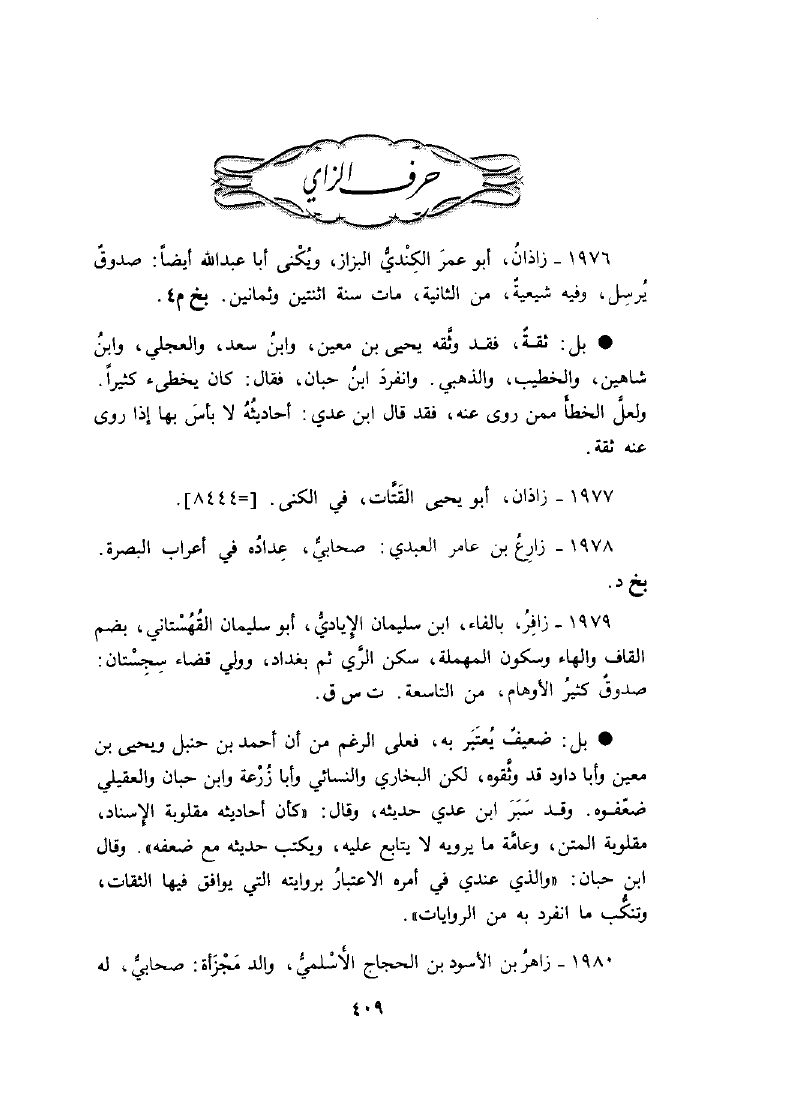 حرف الزاي
١٩٧٦ ـ زاذانُ، أبو عمرَ الكِنْديُّ البزاز، ويُكْنى أبا عبدالله أيضاً: صدوقٌ
يُرسِل، وفيه شيعيةٌ، من الثانية، مات سنة اثنتين وثمانين. بخ م٤.
● بل: ثقـةٌ، فقـد وثَّقه يحيى بن معين، وابنُ سعد، والعجلي، وابنُ
شاهين، والخطيب، والذهبي. وانفردَ ابنُ حبان، فقال: كان يخطىء كثيراً.
ولعلَّ الخطأَ ممن روى عنه، فقد قال ابن عدي: أحاديثُهُ لا بأسَ بها إذا روى
عنه ثقة.
١٩٧٧ ـ زاذان، أبو يحيى القَتَّات، في الكنى. [=٨٤٤٤].
١٩٧٨ ـ زارِعُ بن عامر العبدي: صحابيٌّ، عِدادُه في أعراب البصرة.
بخ د.
١٩٧٩ ـ زافِرُ، بالفاء، ابن سليمان الإياديُّ، أبو سليمان القُهُسْتاني، بضم
القاف والهاء وسكون المهملة، سكن الرَّي ثم بغداد، وولي قضاء سِجِسْتان:
صدوقٌ كثيرُ الأوهام، من التاسعة. ت س ق.
● بل: ضعيفٌ يُعتَبَر به، فعلى الرغم من أن أحمد بن حنبل ويحيى بن
معين وأبا داود قد وثَّقوه، لكن البخاري والنسائي وأبا زُرْعة وابن حبان والعقيلي
ضعّفـوه. وقـد سَبَرَ ابن عدي حديثه، وقال: «كأن أحاديثه مقلوبة الإسناد،
مقلوبة المتن، وعامَّة ما يرويه لا يتابع عليه، ويكتب حديثه مع ضعفه». وقال
ابن حبان: «والذي عندي في أمره الاعتبارُ بروايته التي يوافق فيها الثقات،
وتنكُّب ما انفرد به من الروايات».
١٩٨٠ ـ زاهرُ بن الأسود بن الحجاج الأَسْلميُّ، والد مَجْزَأة: صحابيٌّ، له
٤٠٩